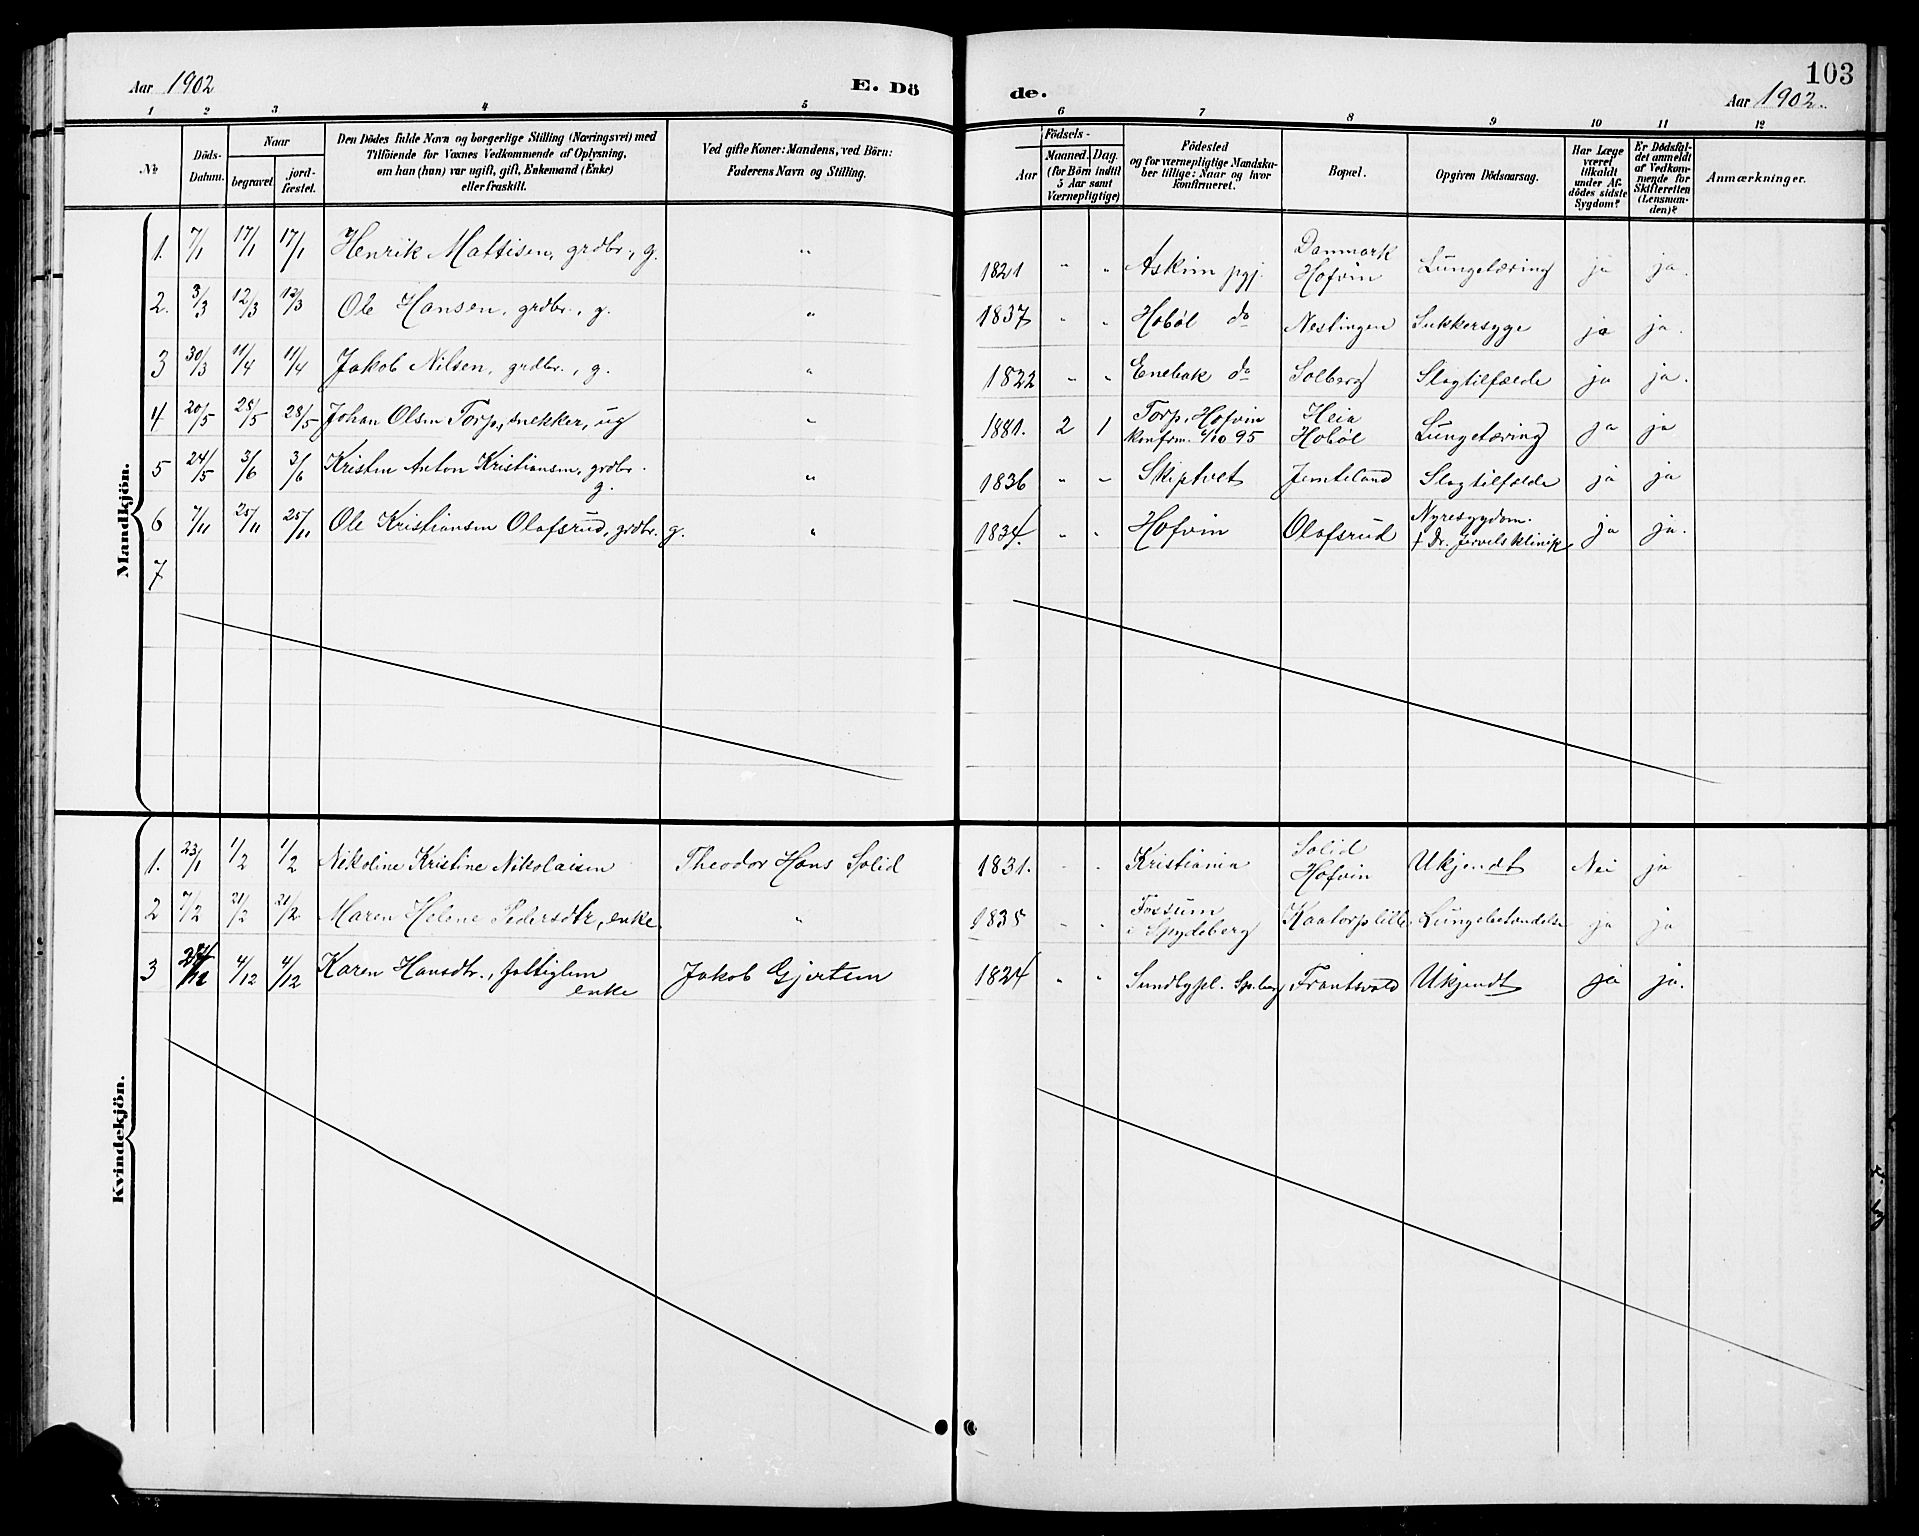 103
Aar 1902
E. Dö
de.
Aar 1902.
1 2 3 4 5 6 7 8 9 10 11 12
№
Döds-Datum.
Naar
begravet
jord-fæstet.
Den Dödes fulde Navn og borgerlige Stilling (Næringsvei) med
Tilföiende for Voxnes Vedkommende af Oplysning,
om han (hun) var ugift, gift, Enkemand (Enke)
eller fraskilt.
Ved gifte Koner: Mandens, ved Börn:
Faderens Navn og Stilling.
Födsels-
Aar
Maaned. Dag.
(for Börn indtil
5 Aar samt
Værnepligtige)
Födested
og for værnepligtige Mandska-
ber tillige: Naar og hvor
konfirmeret.
Bopæl.
Opgiven Dödsaarsag.
Har Læge
været
tilkaldt
under Af-
dödes sidste
Sygdom?
Er Dödsfal-
det anmeldt
af Vedkom-
mende for
Skifteretten
(Lensman-
den)?
Anmærkninger.
Mandkjön.
1. 7/1 17/1 17/1 Henrik Mattisen, grdbr., g. " 1821 " " Askim pgj. Danmark Hofvin Lungetæring ja ja.
2. 3/3 12/3 12/3 Ole Hansen, grdbr., g. " 1837 " " Hobøl do Nestingen Sukkersyge ja ja.
3 30/3 11/4 11/4 Jakob Nilsen, grdbr., g. " 1822 " " Enebak do Solberg Slagtilfælde ja ja.
4. 20/5 28/5 28/5 Johan Olsen Torp, snekker, ug " 1881. 2 1 Torp, Hofvin konfirm. 6/10 95 Heia Hobøl Lungetæring ja ja
5 24/5 3/6 3/6 Kristen Anton Kristiansen, grdbr. g. " 1836 " " Skiptvet Jemteland Slagtilfælde ja ja
6 7/11 25/11 25/11 Ole Kristiansen Olafsrud, grdbr. g. " 1834. " " Hofvin Olafsrud Nyresygdom. † Dr. Jervels klinik ja ja.
7
Kvindekjön.
1. 23/1 1/2 1/2 Nikoline Kristine Nikolaisen Theodor Hans Solid 1831. " " Kristiania Solid Hofvin Ukjendt Nei ja
2 7/2 21/2 21/2 Maren Helene Pedersdtr, enke. " 1835 " " Fossum i Spydeberg Kaatorp lille Lungebetændelse ja ja
3 4/12 4/12 Karen Hansdtr., fattiglem enke Jakob Gjertsen 1824 " " Sundbypl. Sp.berg Frantsvold Ukjendt ja ja.